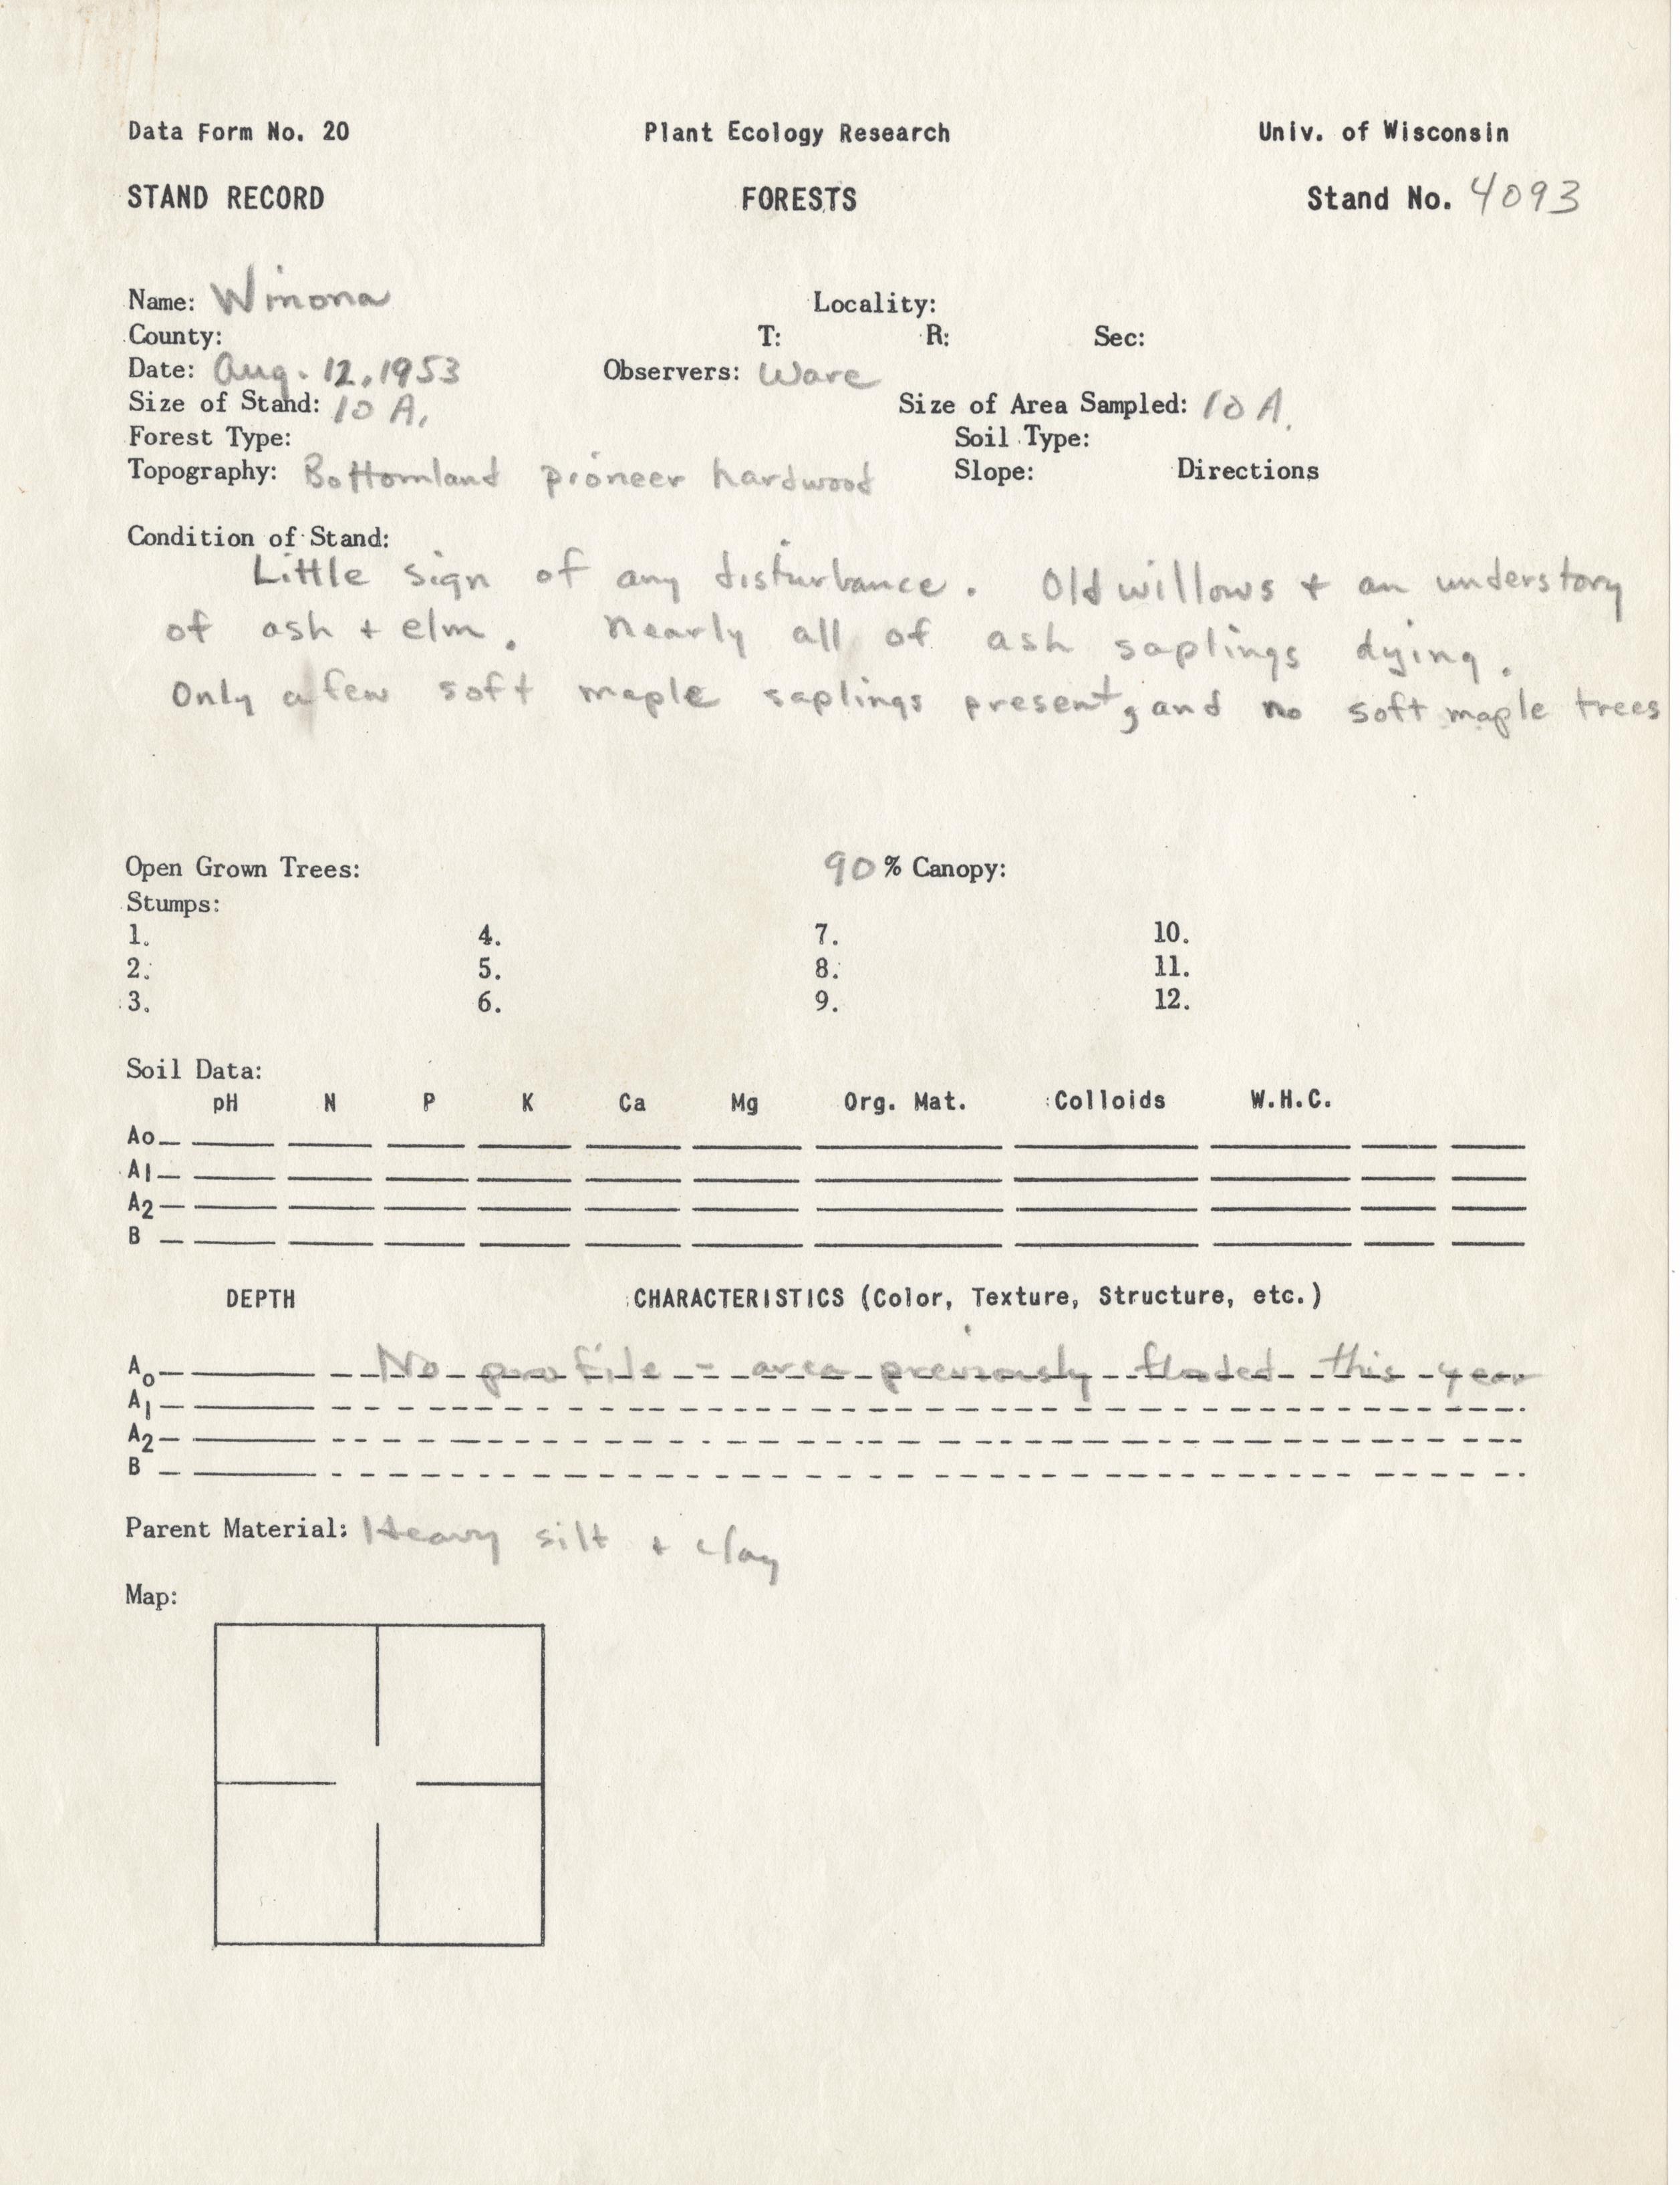 Data Form No. 20 Plant Ecology Research Univ. of Wisconsin
STAND RECORD FORESTS Stand No. 4093
Name: Winona Locality:
County: T: R: Sec:
Date: Aug. 12, 1953 Observers: Ware
Size of Stand: 10 A. Size of Area Sampled: 10 A.
Forest Type: Soil Type:
Topography: Bottomland pioneer hardwood Slope: Directions
Condition of Stand:
Little sign of any disturbance. Old willows + an understory
of ash + elm. Nearly all of ash saplings dying.
Only a few soft maple saplings present, and no soft maple trees
Open Grown Trees: 90 % Canopy:
Stumps:
1. 4. 7. 10.
2. 5. 8. 11.
3. 6. 9. 12.
Soil Data:
pH N P K Ca Mg Org. Mat. Colloids W.H.C.
Ao
A1
A2
B
DEPTH CHARACTERISTICS (Color, Texture, Structure, etc.)
Ao No profile - area previously flooded this year
A1
A2
B
Parent Material: Heavy silt + clay
Map: